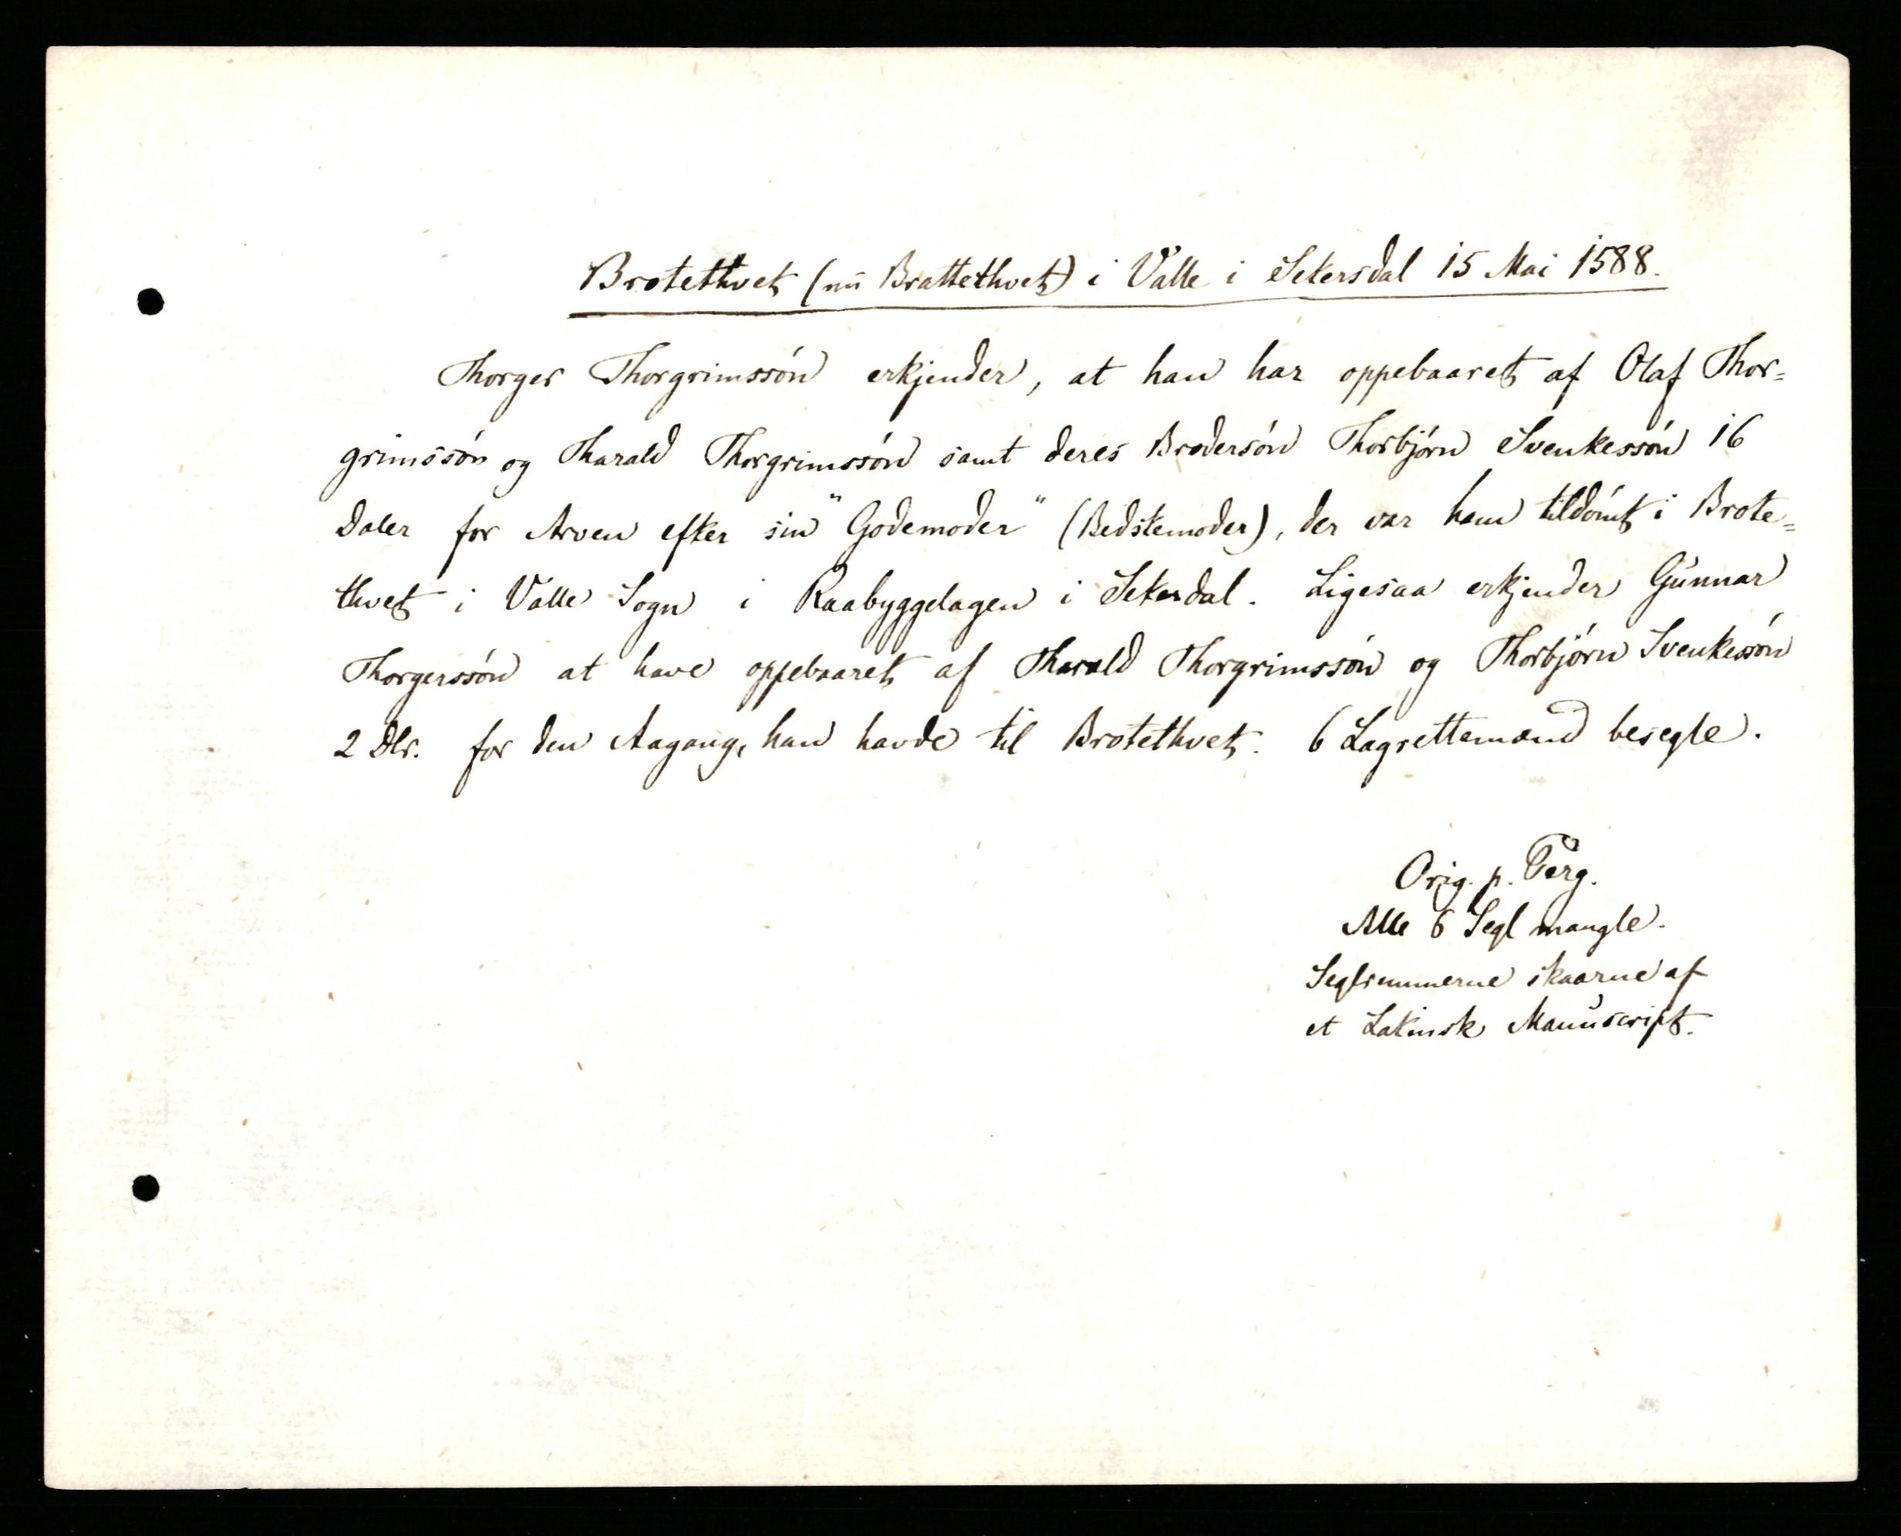 Brotethvet (nu Brattethvet) i Valle i Setersdal 15 Mai 1588.
Thorger Thorgrimssön erkjender, at han har oppebaaret af Olaf Thor-
grimssön og Tharald Thorgrimssön samt deres Brodersön Thorbjörn Svenkessön 16
Daler for Arven efter sin "Godemoder" (Bedstemoder), der var ham tildömt i Brote-
thvet i Valle Sogn i Raabyggelagen i Seterdal. Ligesaa erkjender Gunnar
Thorgerssön at have oppebaaret af Tharald Thorgrimssön og Thorbjörn Svenkessön
2 Dlr. for den Aagang, han havde til Brotethvet. 6 Lagrettemænd besegle.
Orig. p. Perg.
Alle 6 Segl mangle.
Seglremmerne skaarne af
et Latinsk Manuscript.